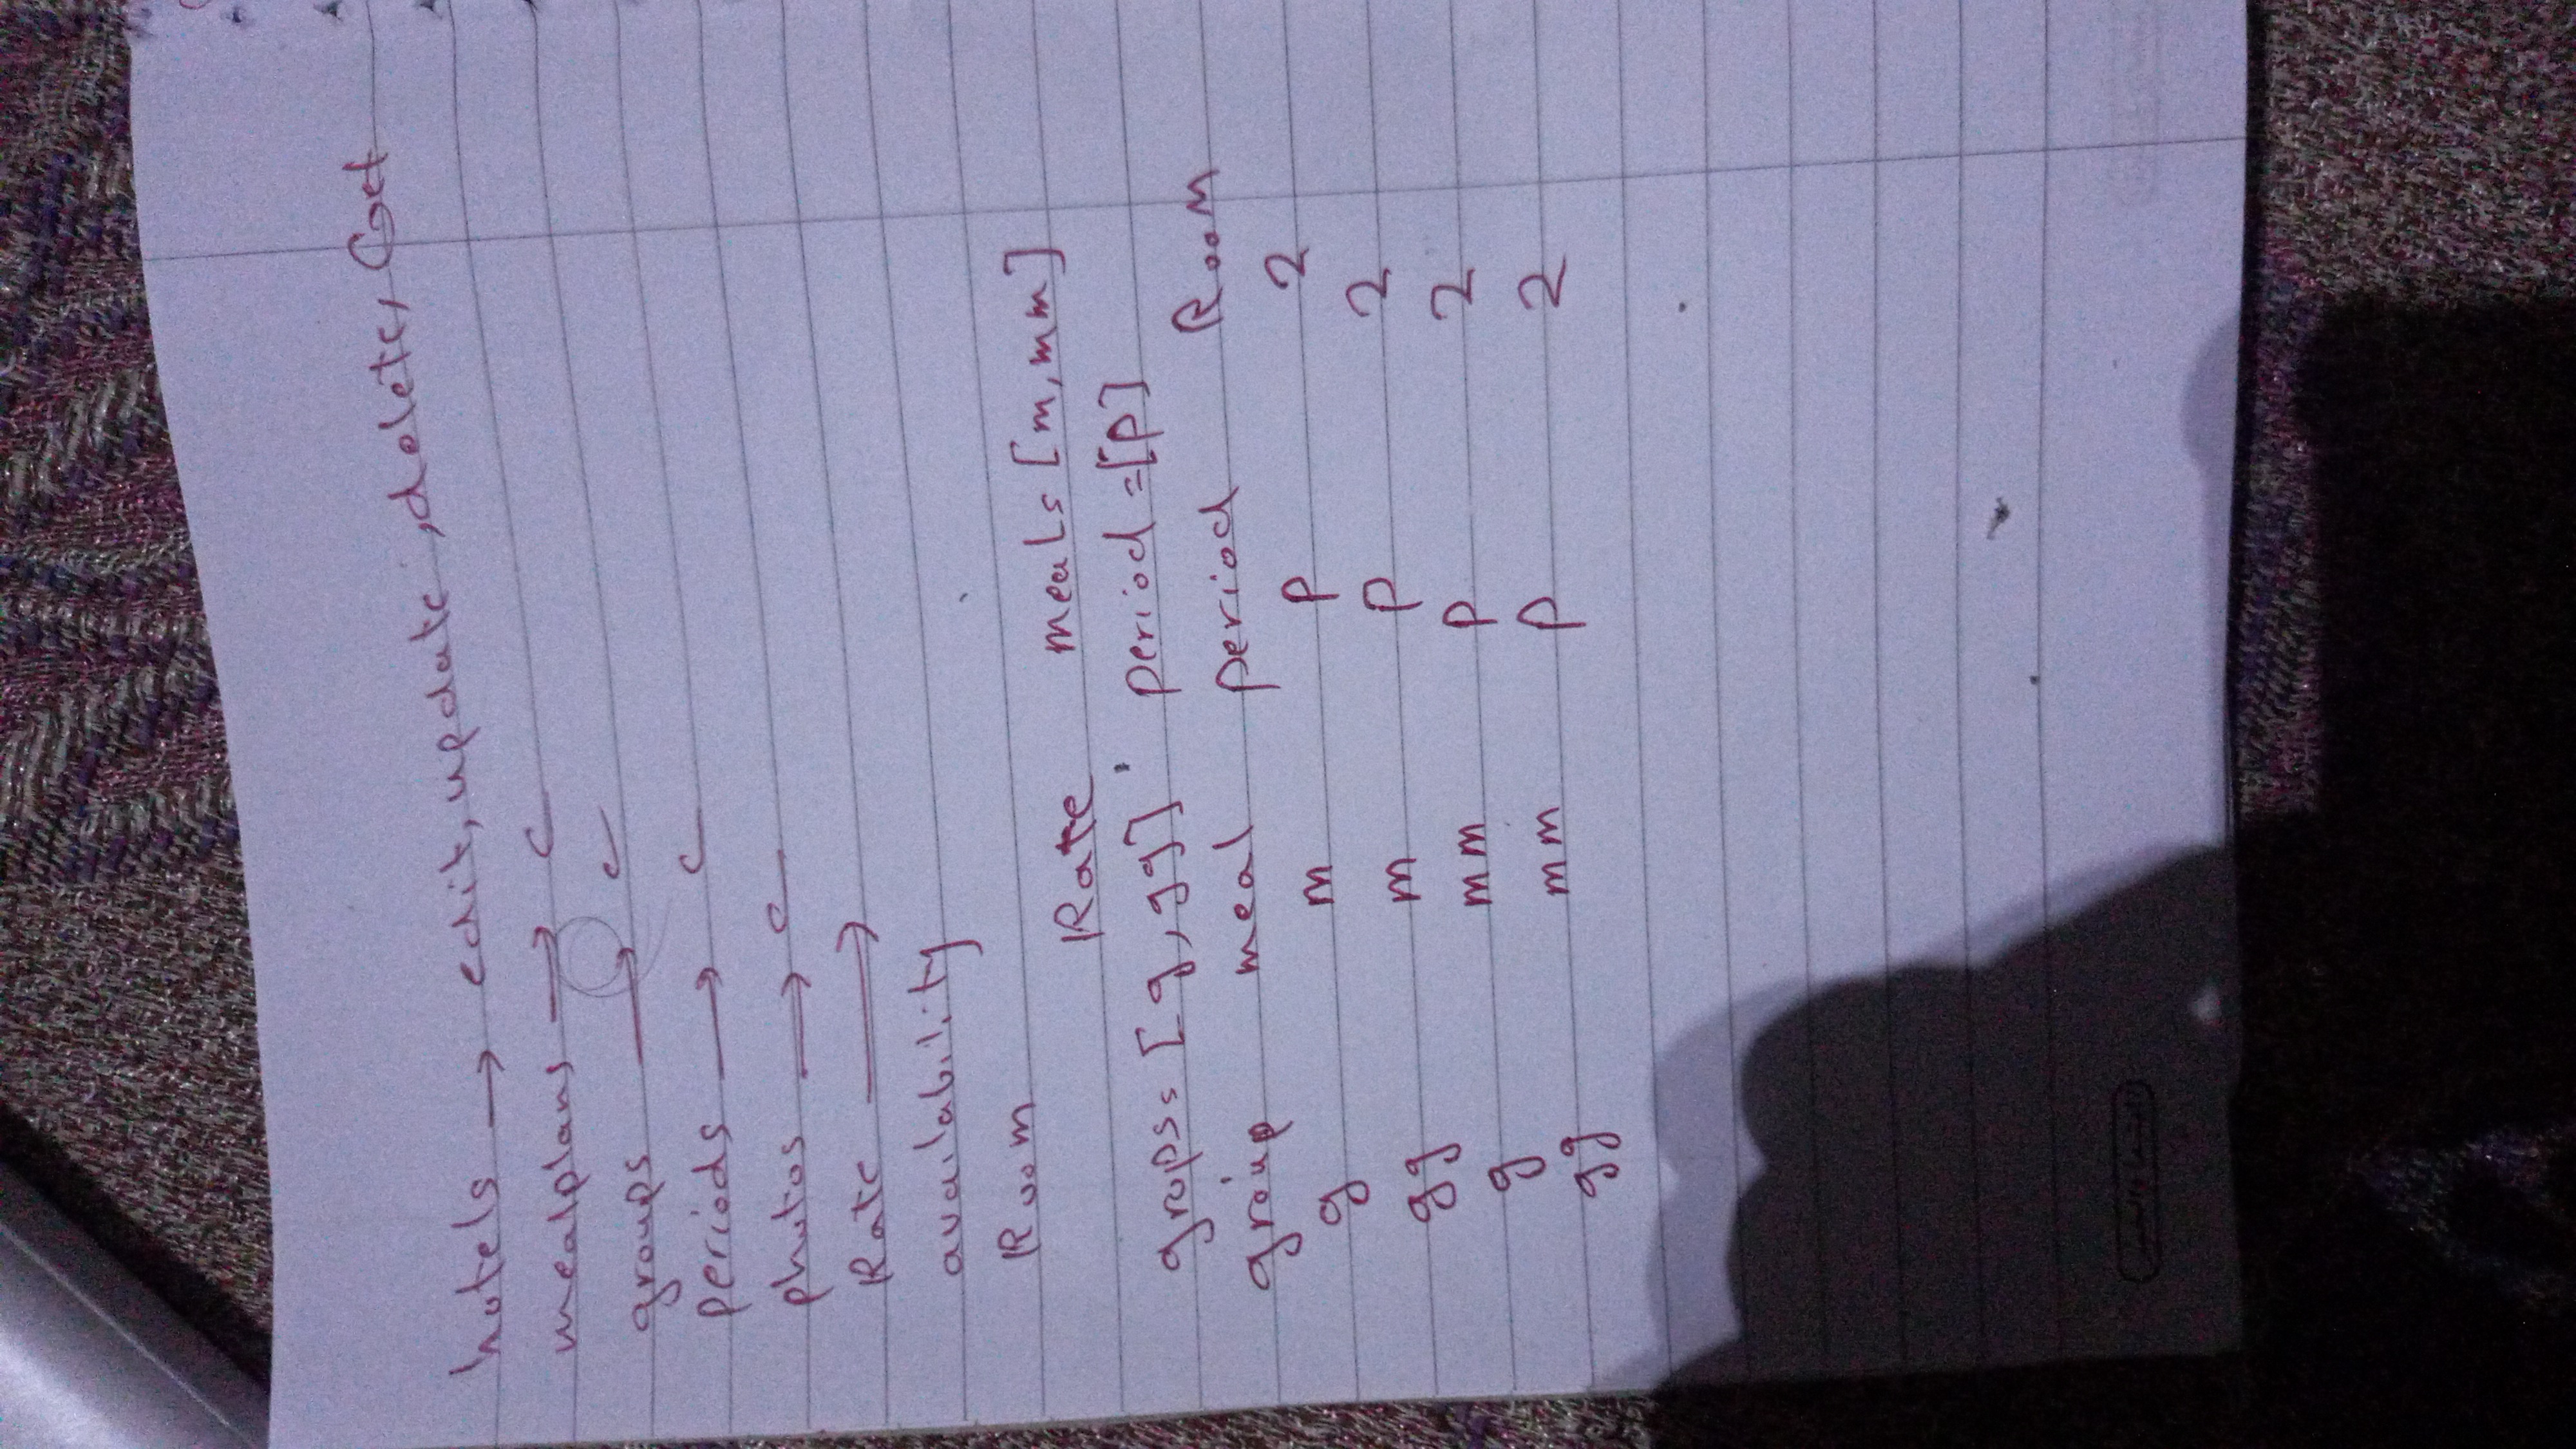 hotels → edit, update, delete, Get
mealplans → c
groups → c
periods → c
photos → c
Rate →
availability
Room
Rate meals [m, mm]
grops= [g, gg] period =[p]
group meal period Room
g m p 2
gg m p 2
g mm p 2
gg mm p 2